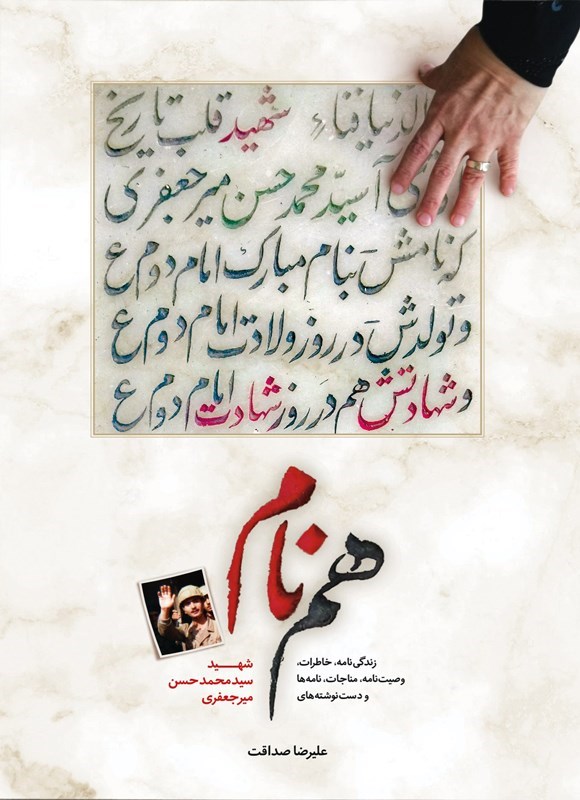 الدنیا فناء شهید قلب تاریخ
آ سیّد محمد حسن میرجعفری
که نامش بنام مبارک امام دوم ع
و تولدش در روز ولادت امام دوم ع
و شهادتش هم در روز شهادت امام دوم ع
هم نام
زندگی‌نامه، خاطرات،
وصیت‌نامه، مناجات، نامه‌ها
و دست‌نوشته‌های
شهید
سیدمحمدحسن
میرجعفری
علیرضا صداقت